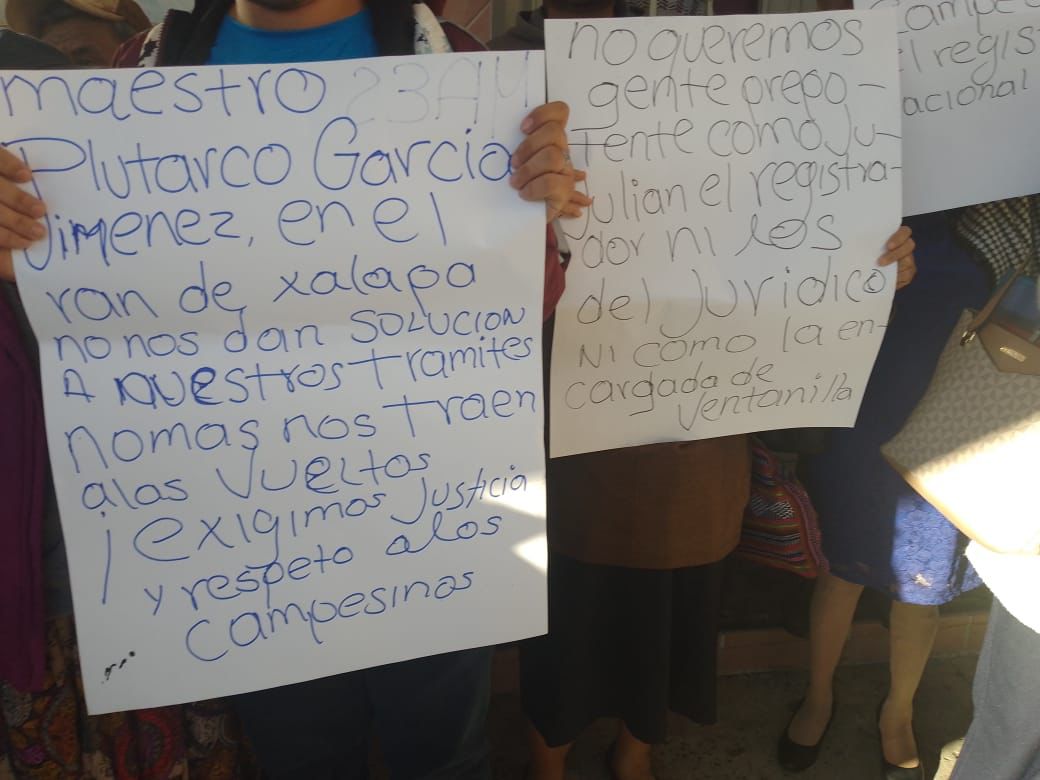 maestro 23AM
Plutarco Garcia
Jimenez, en el
ran de xalapa
no nos dan SOLUCION
A NUESTROS TRAMITES
nomas nos traen
alas VUELTOS
¡EXIGIMOS JUSTICIA
y respeto alos
campesinos
no queremos
gente prepo-
Tente como Ju-
Julian el registra-
dor ni los
del Juridico
NI como la en-
cargada de
Ventanilla
campe
l regis
acional